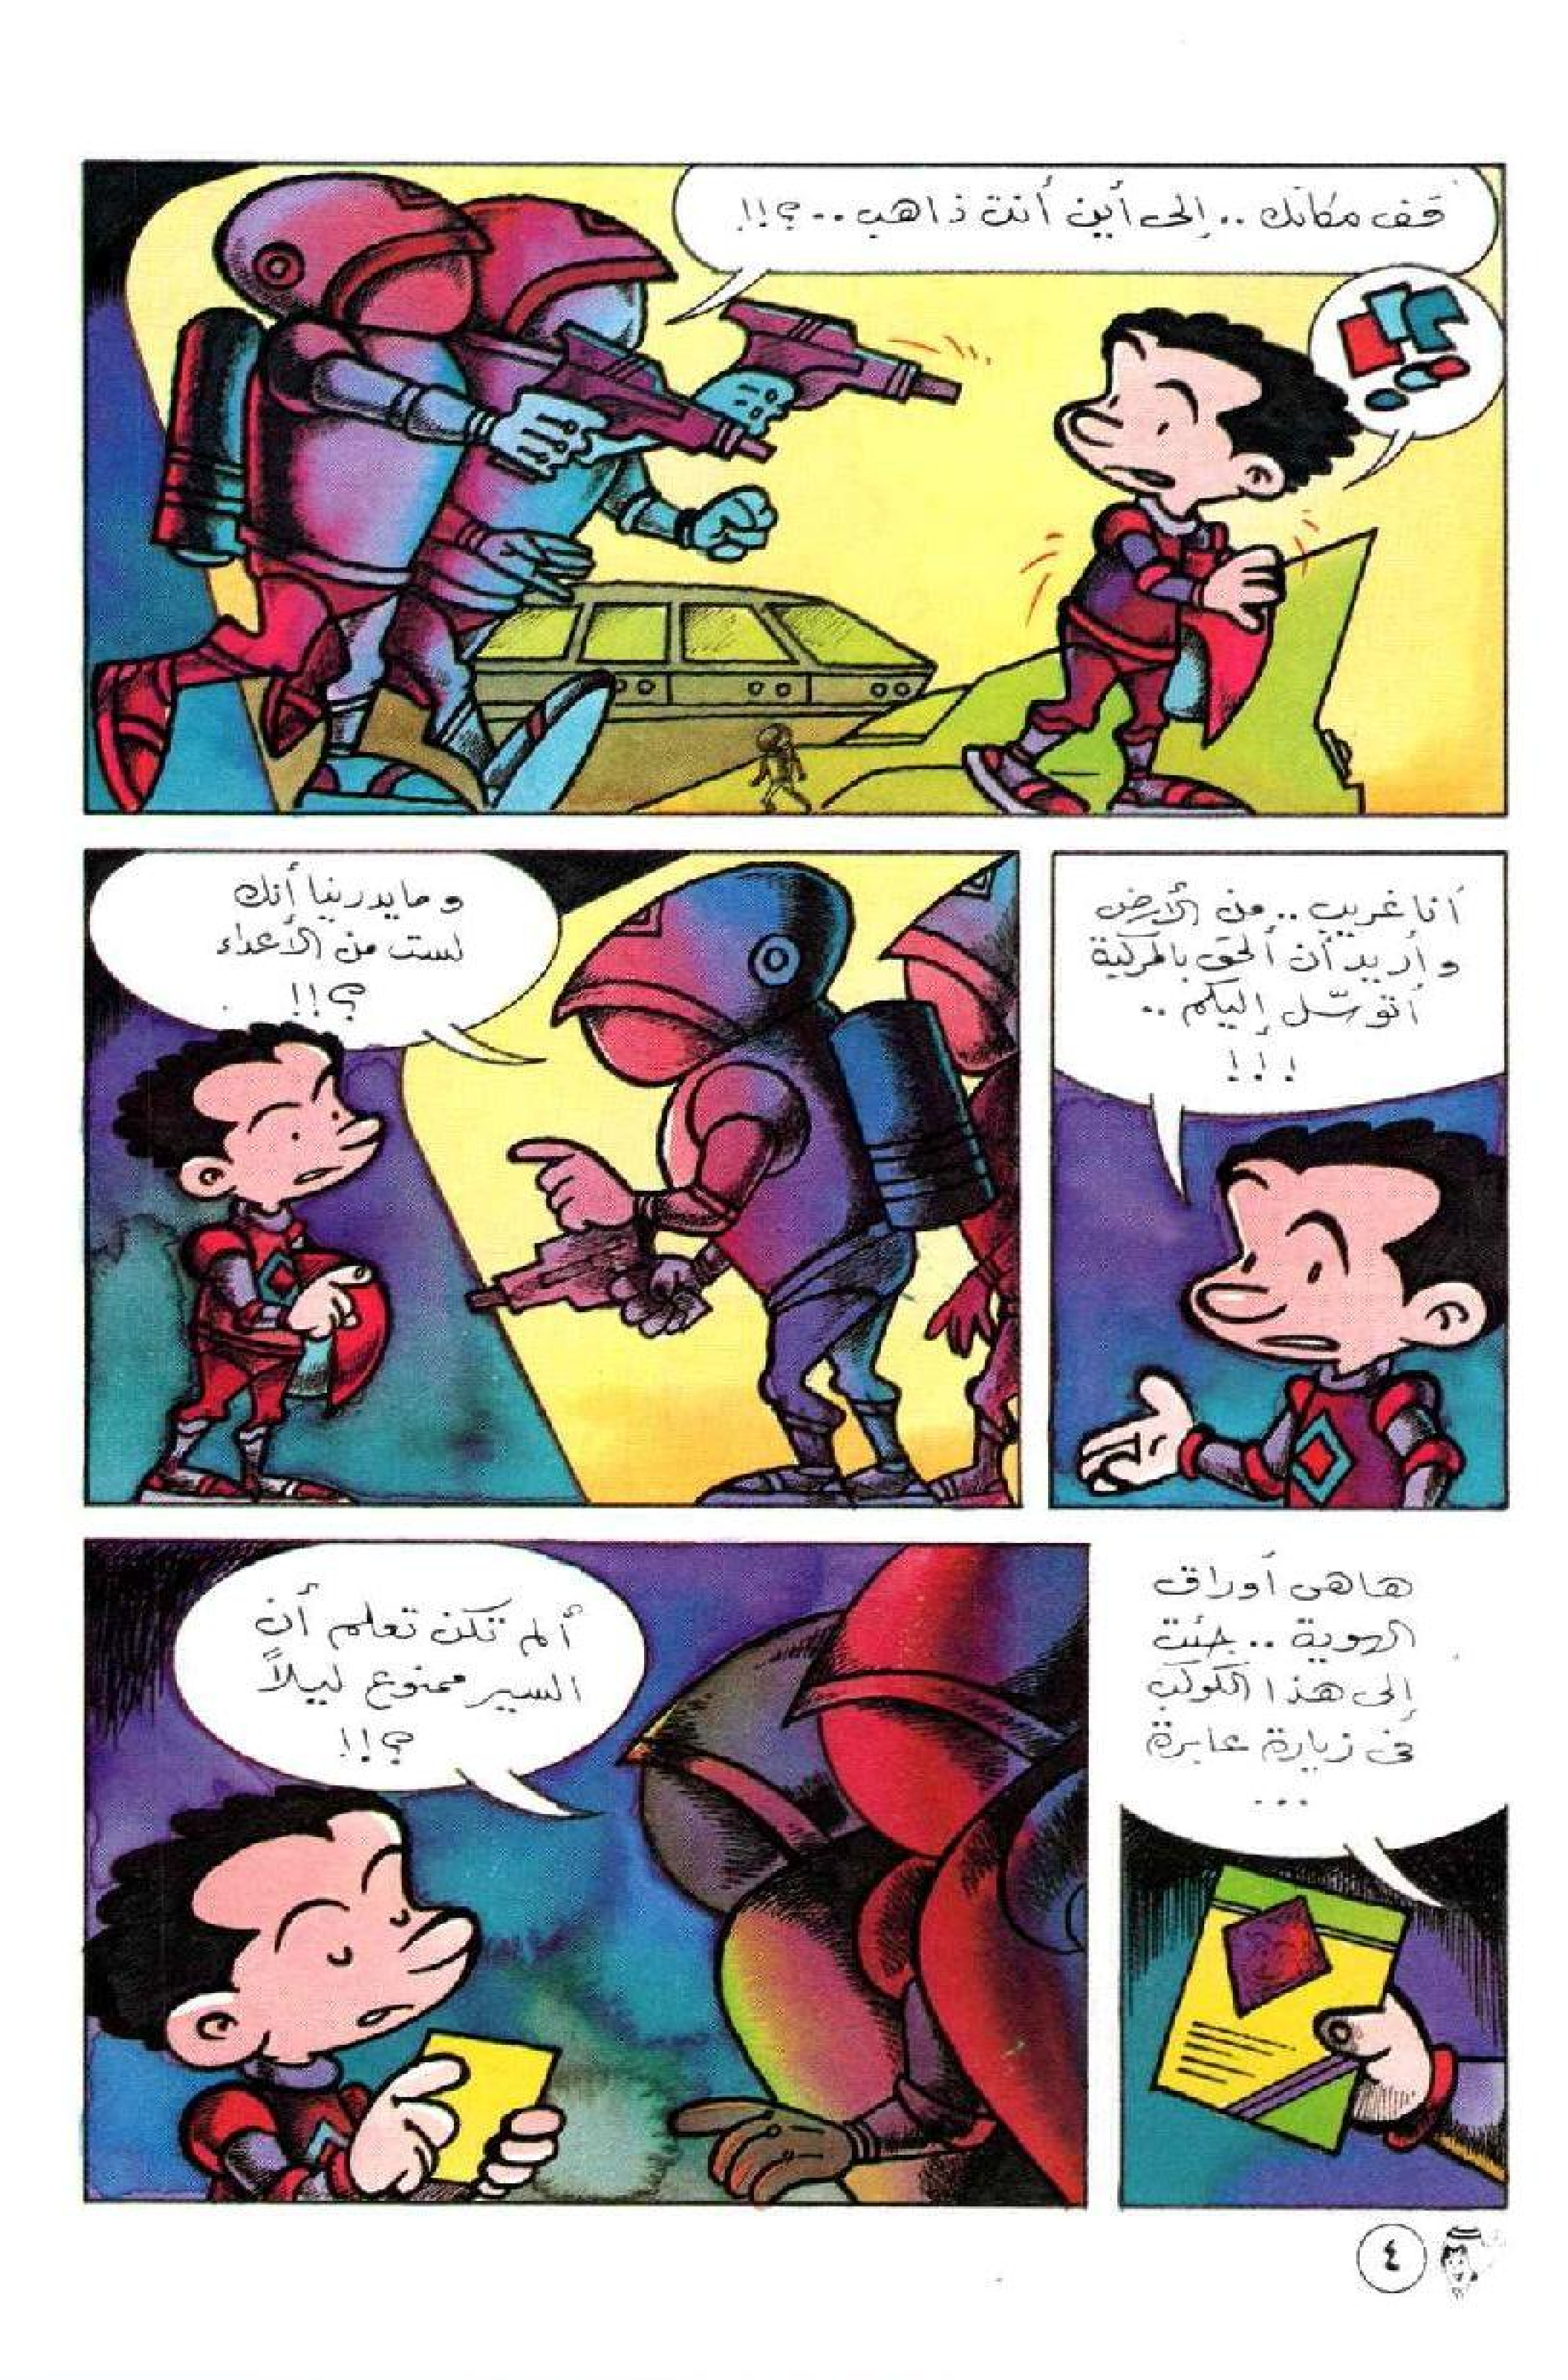 قف مكانك .. إلى أين أنت ذاهب ..؟!!
أنا غريب .. من الأرض
وأريد أن ألحق بالمركبة
أتوسّل إليكم ..
!!!
وما يدرينا أنك
لست من الأعداء
؟!!
هاهى أوراق
الهوية .. جئت
إلى هذا الكوكب
فى زيارة عابرة
...
ألم تكن تعلم أن
السير ممنوع ليلاً
؟!!
٤